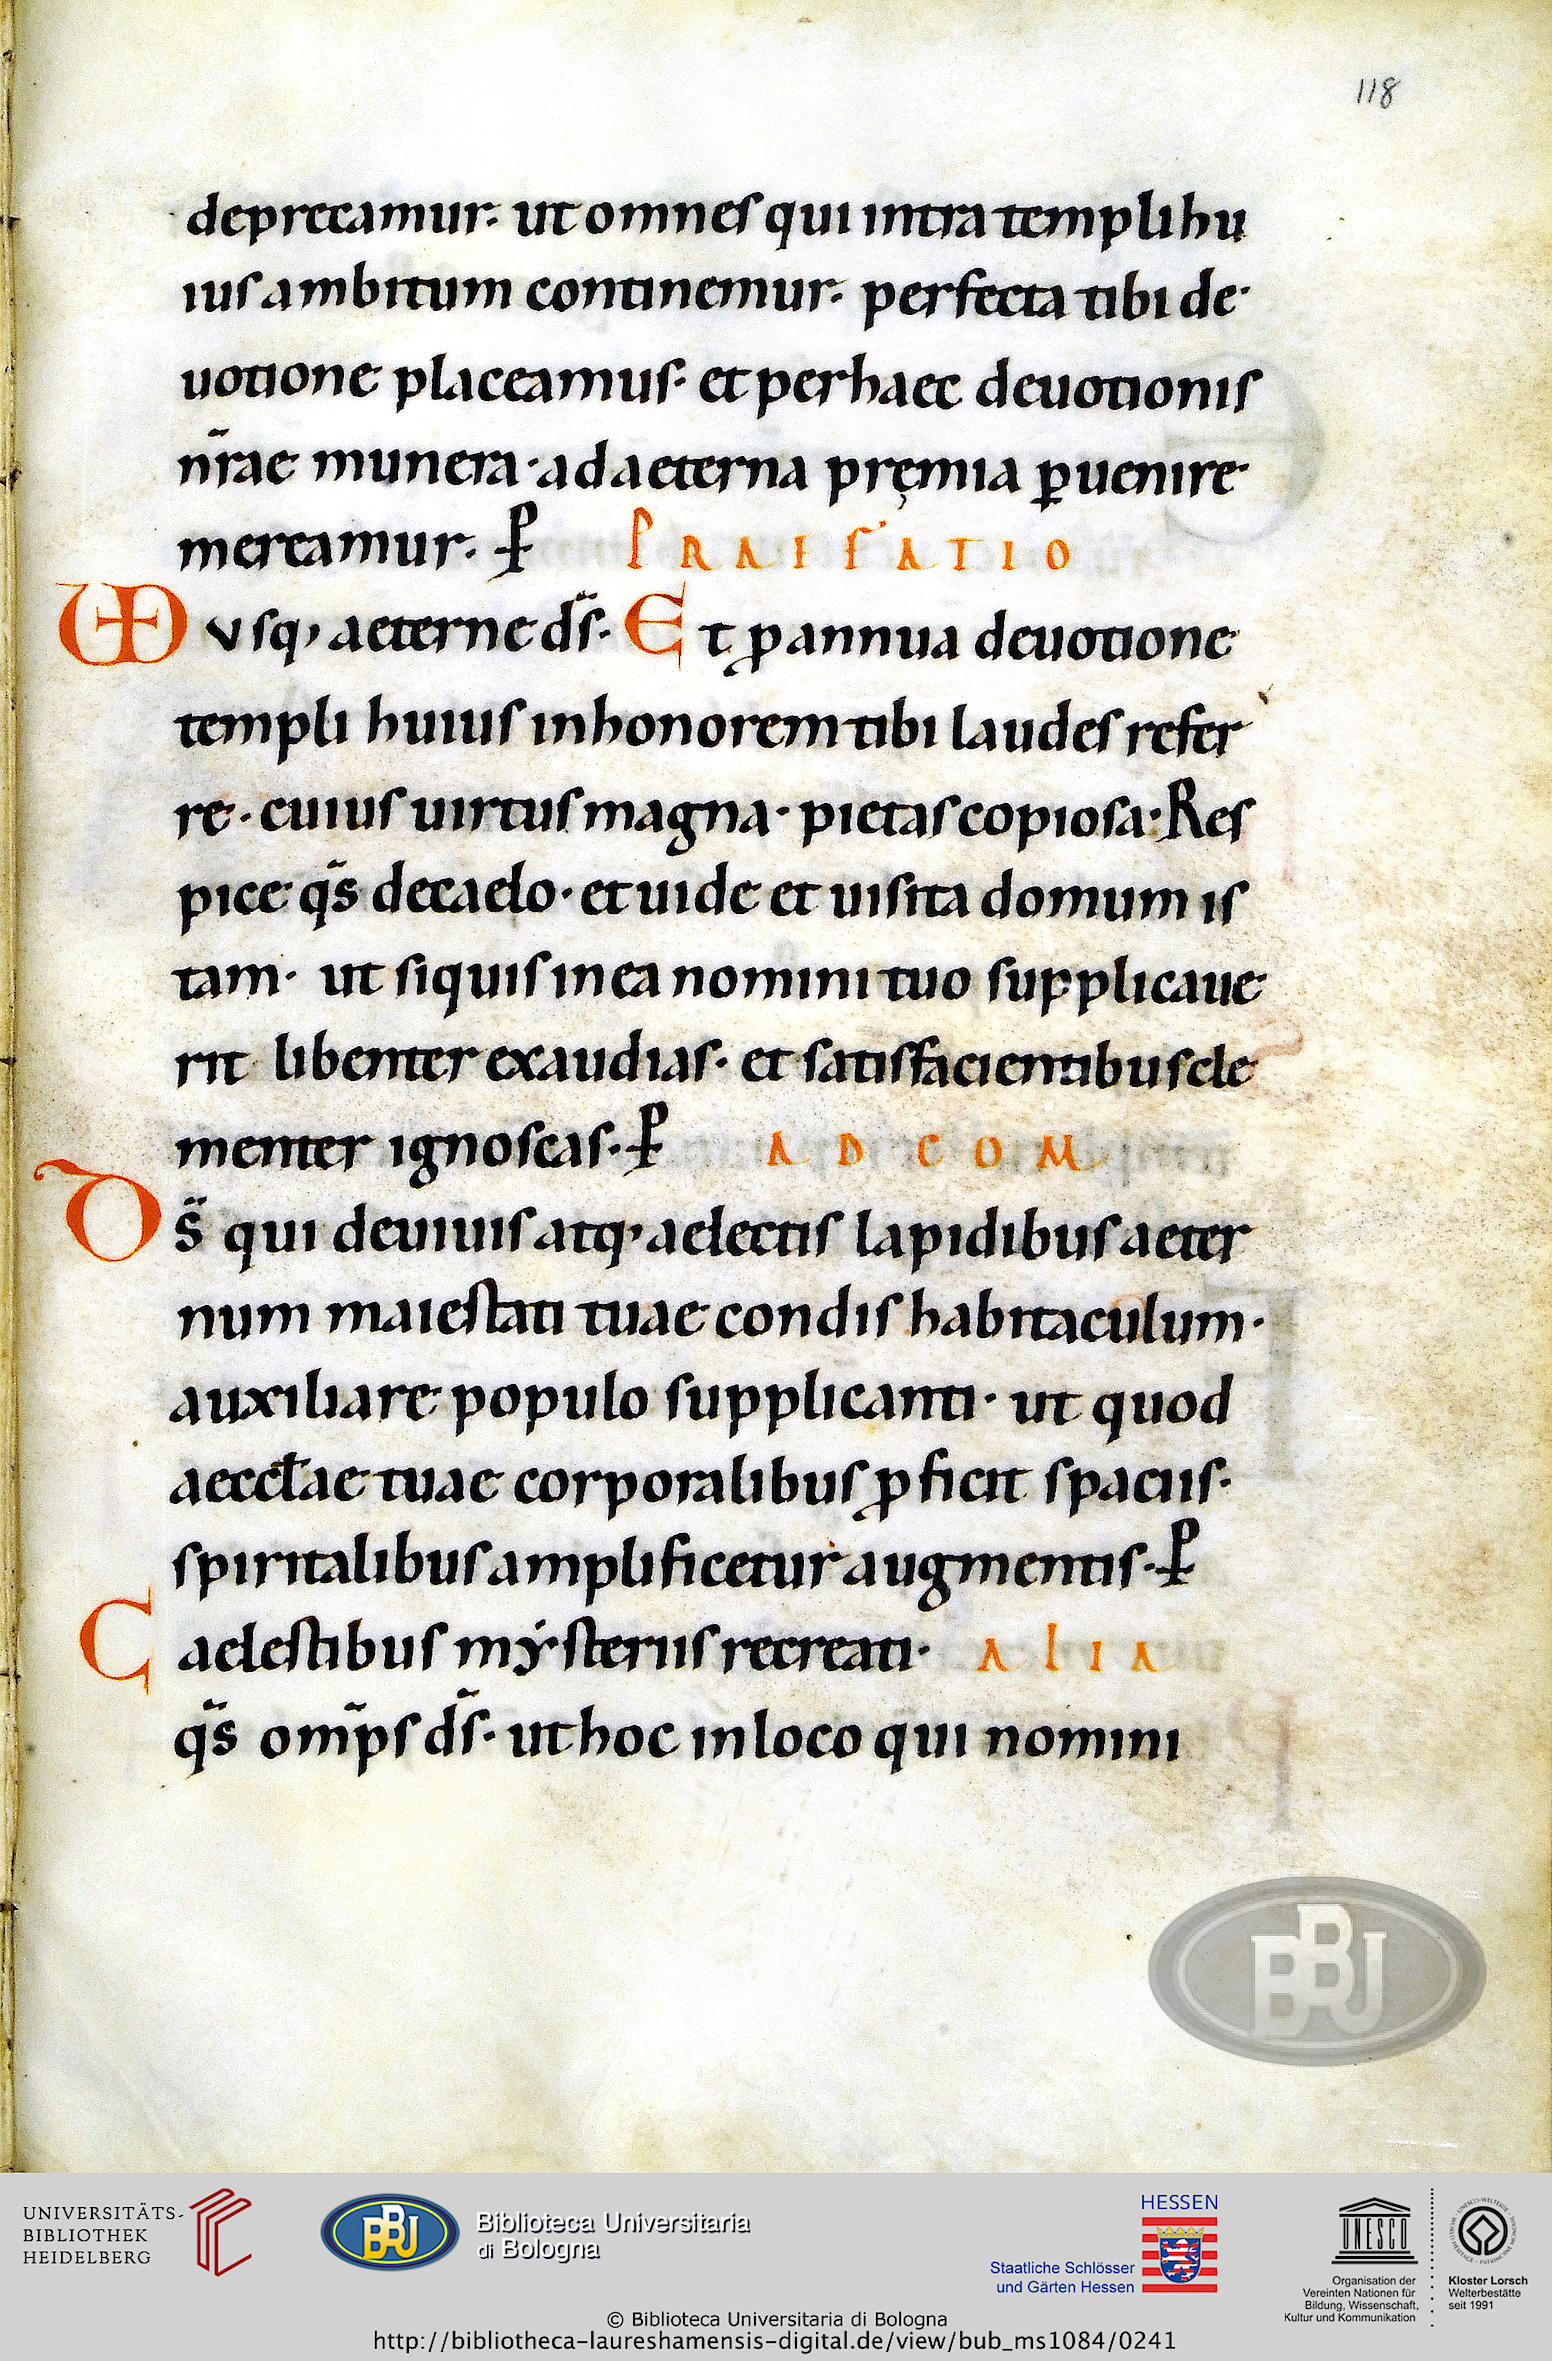 118
deprecamur· ut omnes qui intra templi hu
ius ambitum continemur· perfecta tibi de
uotione placeamus· et per haec deuotionis
nr̄ae munera· ad aeterna pręmia ꝑuenire
mereamur· P̵ PRAEFATIO
VD usq; aeterne d̄s· Et ꝓ annua deuotione
templi huius in honorem tibi laudes refer
re· cuius uirtus magna· pietas copiosa· Res
pice q̄s de caelo· et uide et uisita domum is
tam· ut si quis in ea nomini tuo supplicaue
rit libenter exaudias· et satisfacientibus cle
menter ignoscas· P̵ AD COM
D s̄ qui de uiuis atq; aelectis lapidibus aeter
num maiestati tuae condis habitaculum·
auxiliare populo supplicanti· ut quod
aeccłae tuae corporalibus ꝓficit spaciis·
spiritalibus amplificetur augmentis· P̵
Caelestibus mẏsteriis recreati· ALIA
q̄s om̄ps d̄s· ut hoc in loco qui nomini
BBU
UNIVERSITÄTS-
BIBLIOTHEK
HEIDELBERG
BBU
Biblioteca Universitaria
di Bologna
HESSEN
Staatliche Schlösser
und Gärten Hessen
UNESCO
Organisation der
Vereinten Nationen für
Bildung, Wissenschaft,
Kultur und Kommunikation
Kloster Lorsch
Welterbestätte
seit 1991
© Biblioteca Universitaria di Bologna
http://bibliotheca-laureshamensis-digital.de/view/bub_ms1084/0241